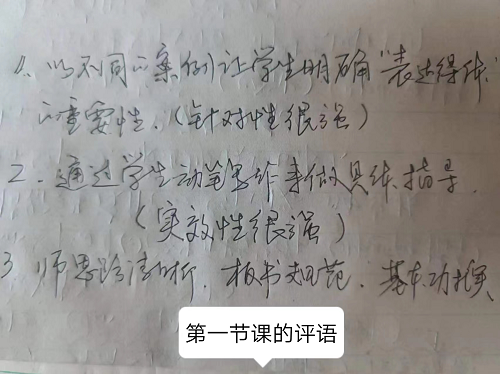 1、以不同的案例让学生明确"表达得体"
的重要性.(针对性很强)
2.通过学生动笔写作来做具体指导.
(实效性很强)
3 师思路清晰.板书规范.基本功扎实
第一节课的评语